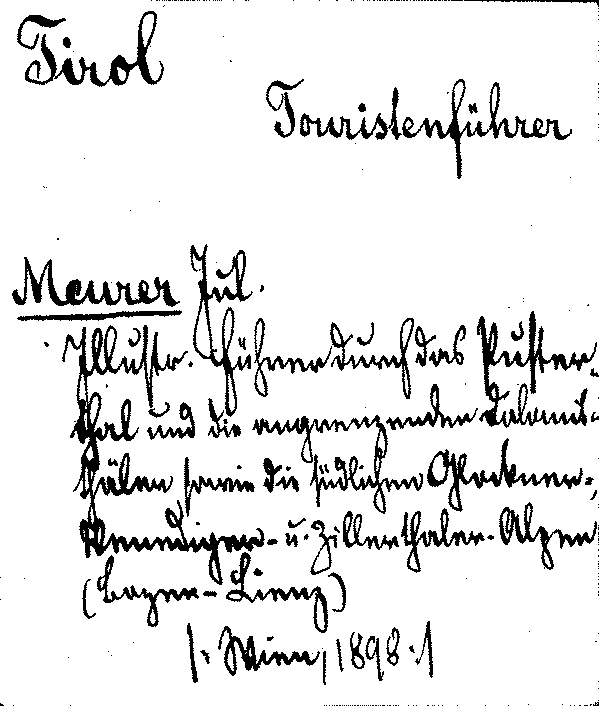 Tirol
Touristenführer
Meurer Jul.
Illustr. Führer durch das Puster-
thal und die angrenzenden Dolomit-
thäler sowie die südlichen Glockner-,
Venediger- u. Zillerthaler-Alpen
(Bozen-Lienz)
|: Wien, 1898 :|